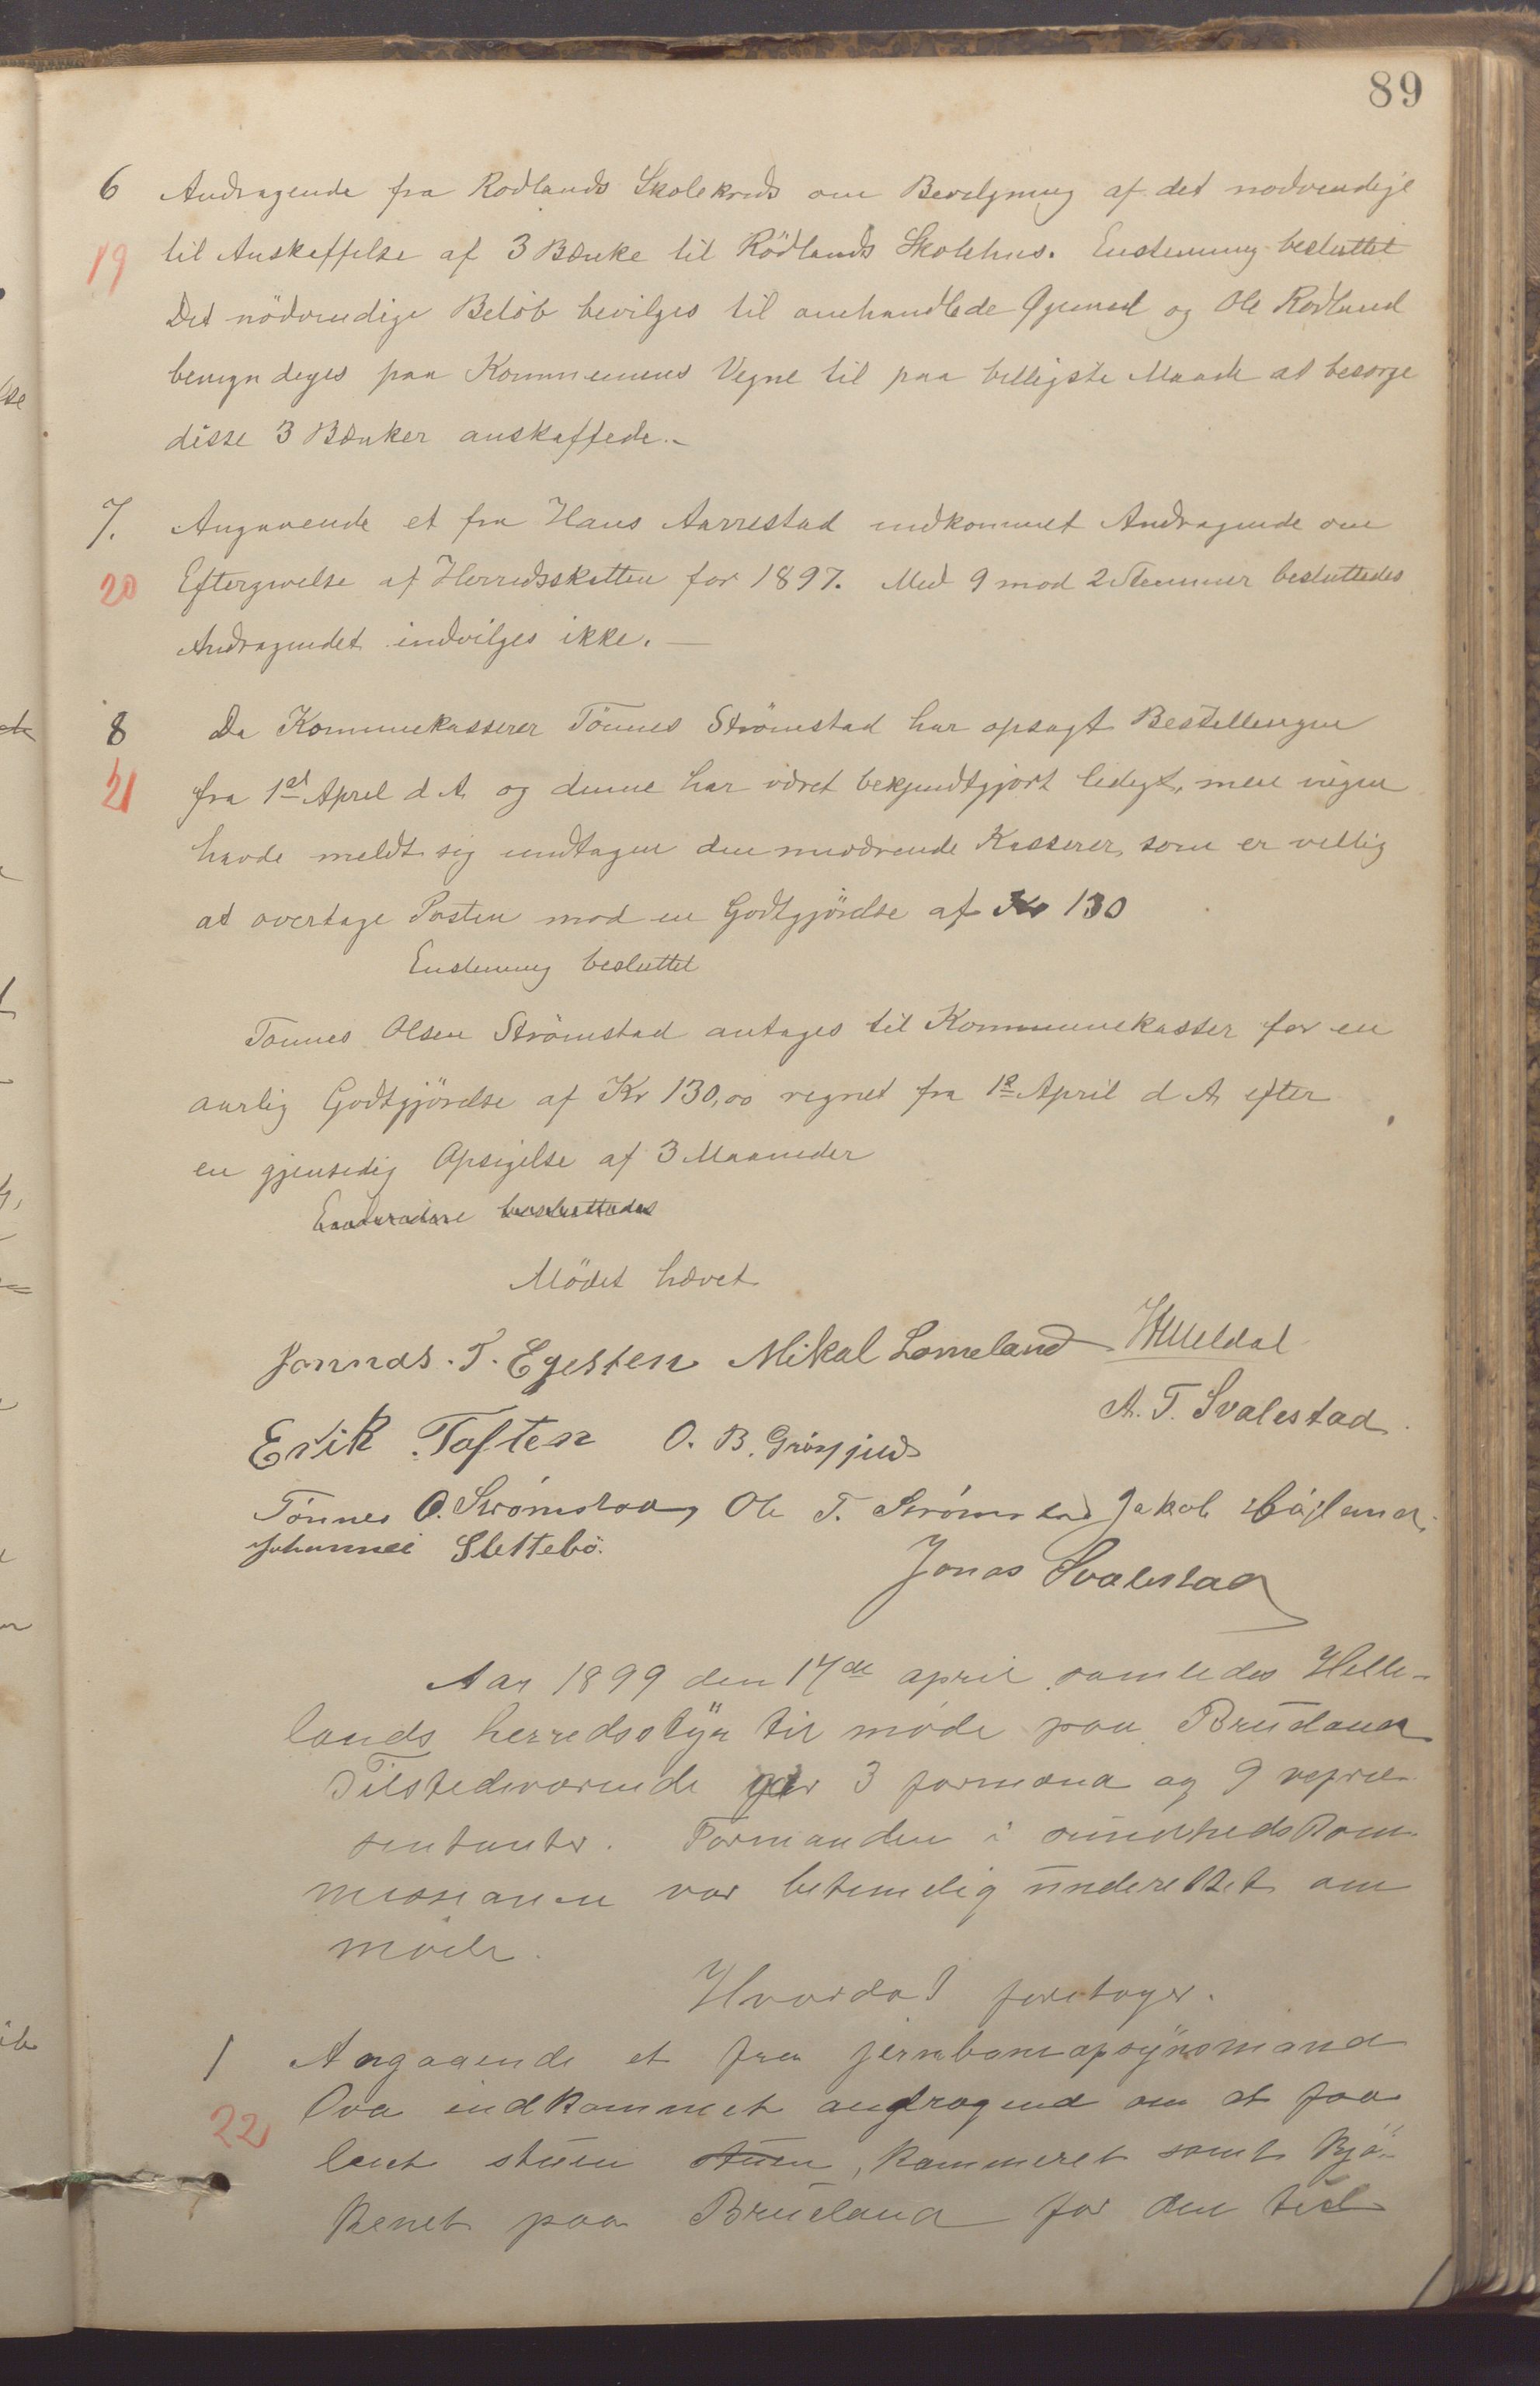 89
6 Andragende fra Rodlands Skolekreds om Bevilgning af det nødvendige
19 til Anskaffelse af 3 Bænke til Rödlands Skolehus. Enstemmig besluttet
Det nödvendige Beløb bevilges til omhandlede Øiemed og Ole Rodland
bemyndeges paa Kommunens Vegne til paa billigste Maade at besørge
disse 3 Bænker anskaffede.-
7. Angaaende et fra Hans Aarrestad indkommet Andragende om
20 Eftergivelse af Herredsskatten for 1897. Med 9 mod 2 Stemmer besluttedes
Andragendet indvilges ikke. —
8 Da Kommunekasserer Tönnes Strömstad har opsagt Bestillingen
21 fra 1st April d A og denne har været bekjendtgjort ledigt, men ingen
havde meldt sig undtagen den nuværende Kasserer, som er villig
at overtage Posten mod en Godtgjörelse af Kr 130
Enstemmig besluttet
Tönnes Olsen Strömstad antages til Kommunekasser for en
aarlig Godtgjörelse af Kr 130,00 regnet fra 1st April d A efter
en gjensidig Opsigelse af 3 Maaneder
besluttedes
Mödet hævet
Jonnas. T. Egesten Mikal Lomeland
A. T. Svalestad.
Erik Toften O. B.
Tönnes O. Strömstad, Ole T. Strömstad Jakob
Johannes Slettebö.
Jonas Svalestad
Aar 1899 den 17de april samledes Helle-
lands herredsstÿr til møde paa Brüdland
Tilstedeværende var 3 formænd og 9 repræ-
sentanter. Formanden i sundhedskom-
missionen var betimelig ünderettet om
møde.
Hvorda foretoges.
1 Angaaende et fra jernbaneopsÿnsmand
Ova indkommet andragend om at faa
22 leiet stüen stüen, kammeret samt kjø-
kenet paa Brüdland for den tid